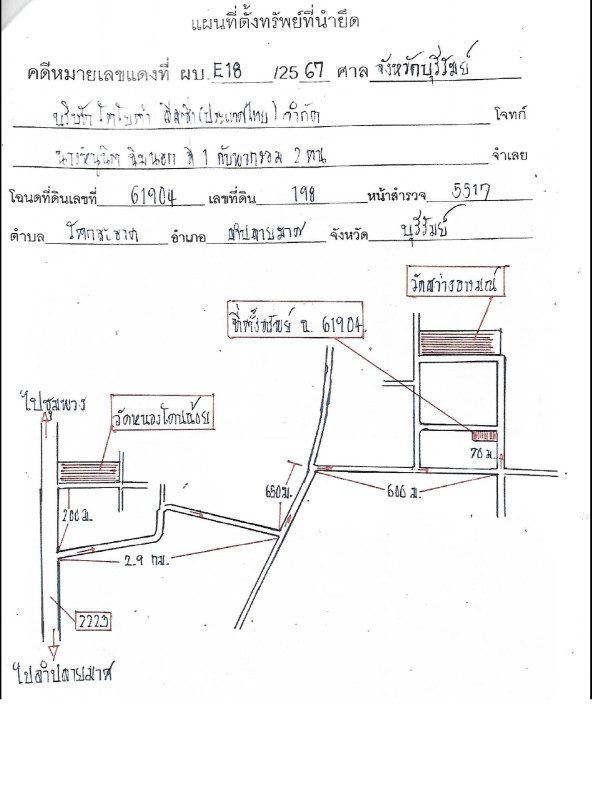 แผนที่ตั้งทรัพย์ที่นำยึด
คดีหมายเลขแดงที่ ผบ. E18 /25 67 ศาล จังหวัดบุรีรัมย์
บริษัท โตโยต้า ลีสซิ่ง (ประเทศไทย) จำกัด โจทก์
ที่ 1 กับพวกรวม 2 คน จำเลย
โฉนดที่ดินเลขที่ 61904 เลขที่ดิน 198 หน้าสำรวจ 5517
ตำบล โคกสะอาด อำเภอ ลำปลายมาศ จังหวัด บุรีรัมย์
วัดสว่างอารมณ์
ที่ตั้งทรัพย์ ฉ. 61904
ไปชุมพวง
วัดหนองโดนน้อย
70 ม.
650 ม.
600 ม.
200 ม.
2.9 กม.
2223
ไปลำปลายมาศ